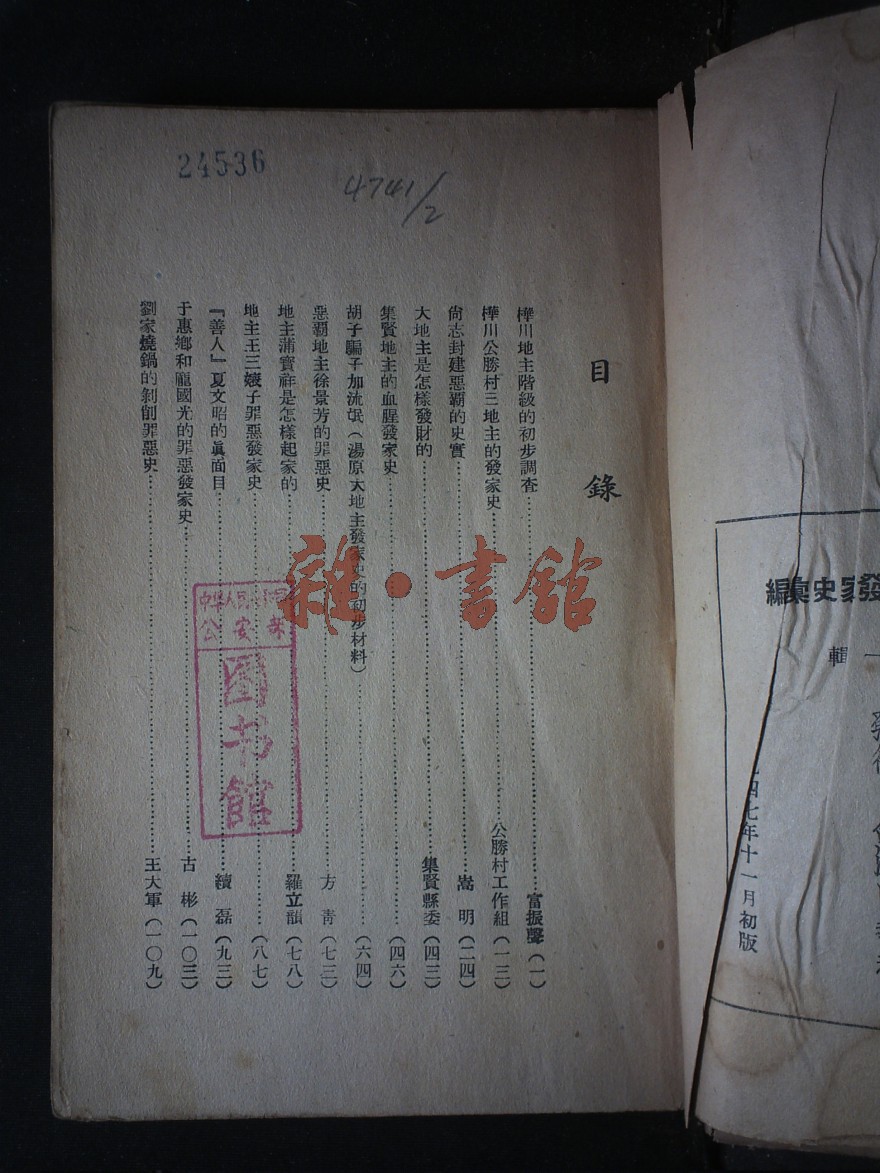 24536
4741/2
目錄
樺川地主階級的初步調查……富振聲(一)
樺川公勝村三地主的發家史……公勝村工作組(一三)
尙志封建惡霸的史實……嵩明(二四)
大地主是怎樣發財的……集賢縣委(四三)
集賢地主的血腥發家史……(四六)
胡子騙子加流氓(湯原大地主發家史的初步材料)……(六四)
惡霸地主徐景芳的罪惡史……方靑(七三)
地主蒲寶祥是怎樣起家的……羅立韻(七八)
地主王三嫂子罪惡發家史……(八七)
『善人』夏文昭的眞面目……續磊(九三)
于惠鄉和龐國光的罪惡發家史……古彬(一〇三)
劉家燒鍋的剝削罪惡史……王大軍(一〇九)
雜·書館
公安
图书館
發家史彙編
一輯
四七年十一月初版